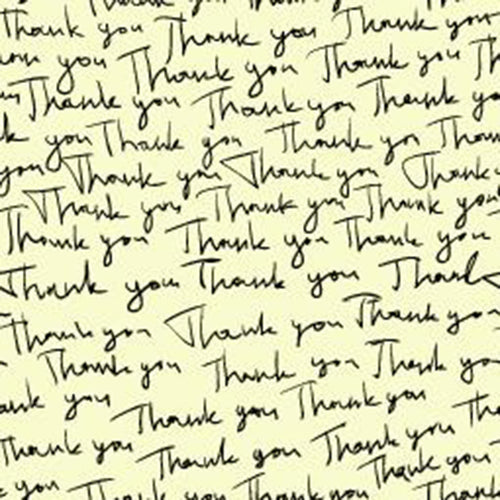 Thank you
Thank you Thank you Thank you
you Thank you Thank you
Thank you Thank you Thank you
you Thank you Thank you
you Thank you Thank you Thank
Thank you Thank you Thank you
Thank you Thank you Thank you
Thank you Thank you Thank
Thank you Thank you Thank
Thank you Thank you Thank you
you Thank you Thank you
Thank you Thank you Thank you
you Thank you Thank you Thank you